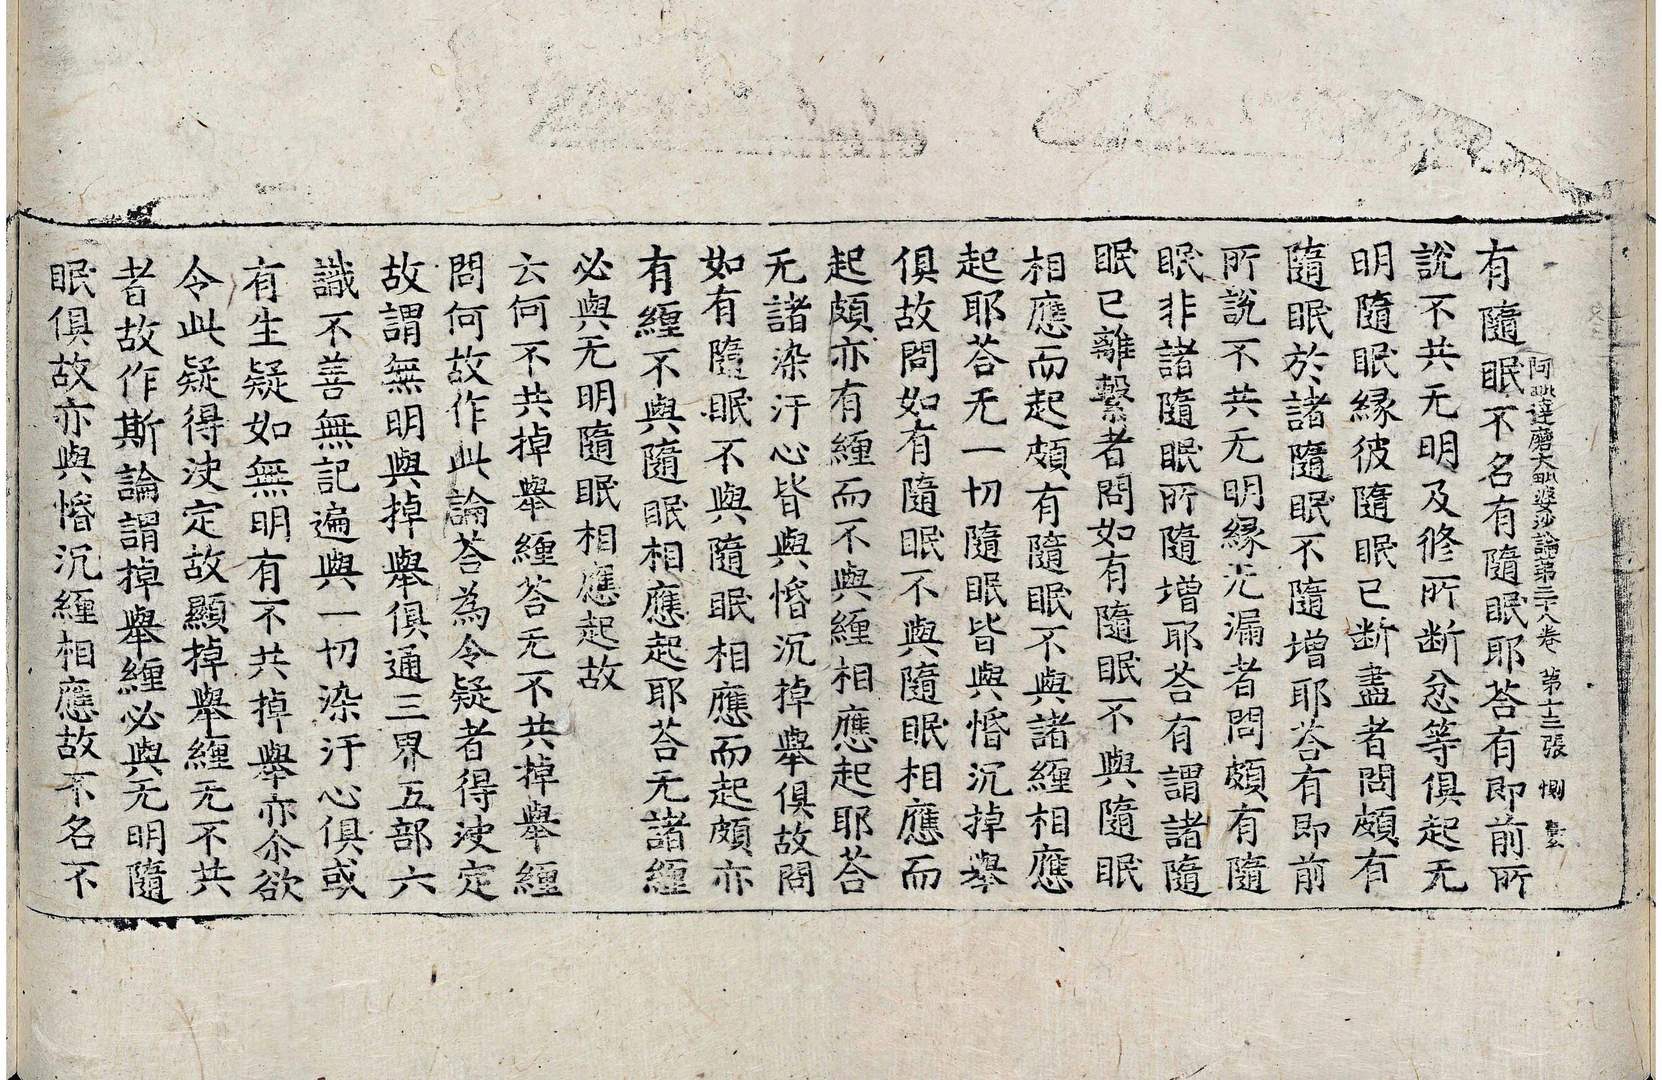 阿毗達磨大毗婆沙論第三十八卷　第十三張　惻
有隨眠不名有隨眠耶荅有即前所
說不共无明及修所断忿等俱起无
明隨眠緣彼隨眠已断盡者問頗有
隨眠於諸隨眠不隨增耶荅有即前
所說不共无明緣无漏者問頗有隨
眠非諸隨眠所隨增耶荅有謂諸隨
眠已離繫者問如有隨眠不與隨眠
相應而起頗有隨眠不與諸纏相應
起耶荅无一切隨眠皆與惛沉掉舉
俱故問如有隨眠不與隨眠相應而
起頗亦有纏而不與纏相應起耶荅
无諸染汙心皆與惛沉掉舉俱故問
如有隨眠不與隨眠相應而起頗亦
有纏不與隨眠相應起耶荅无諸纏
必與无明隨眠相應起故
云何不共掉舉纏荅无不共掉舉纏
問何故作此論荅為令疑者得决定
故謂無明與掉舉俱通三界五部六
識不善無記遍與一切染汙心俱或
有生疑如無明有不共掉舉亦尒欲
令此疑得决定故顯掉舉纏无不共
者故作斯論謂掉舉纏必與无明隨
眠俱故亦與惛沉纏相應故不名不